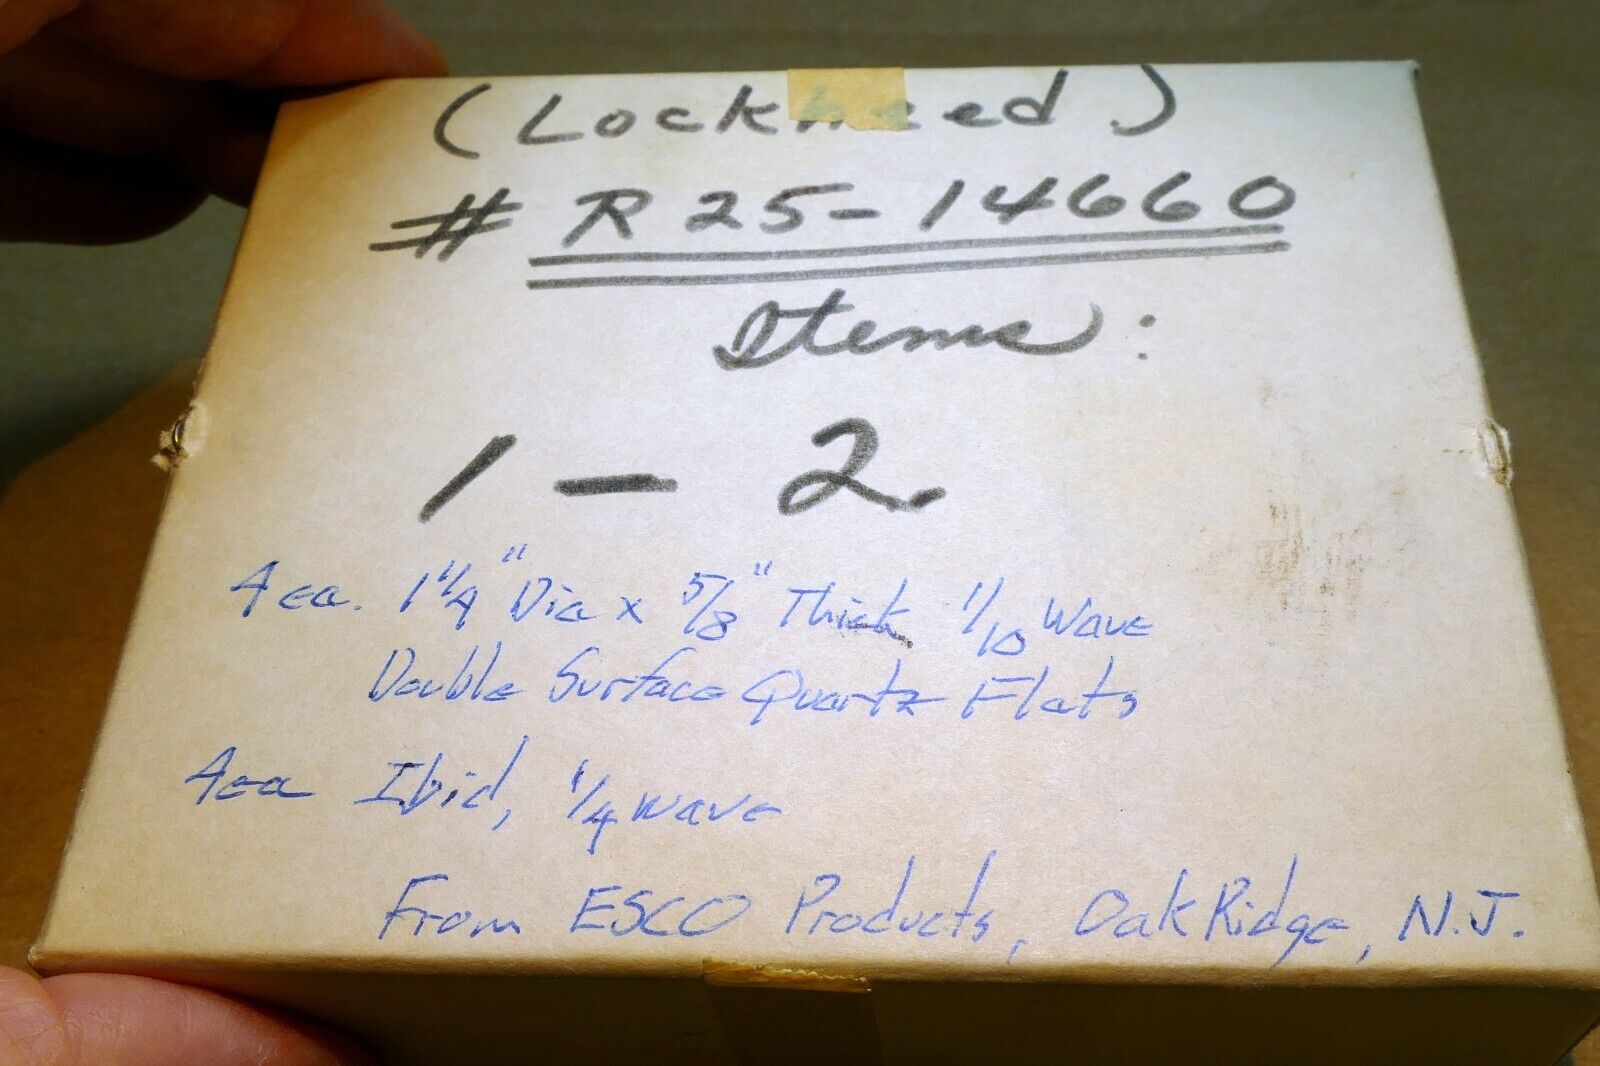 (Lockheed)
# R25-14660
Items:
1 - 2.
4 ea. 1 1/4" Dia x 5/8" Thick 1/10 Wave
Double Surface Quartz Flats
4 ea Ibid, 1/4 wave
From ESCO Products, Oak Ridge, N.J.